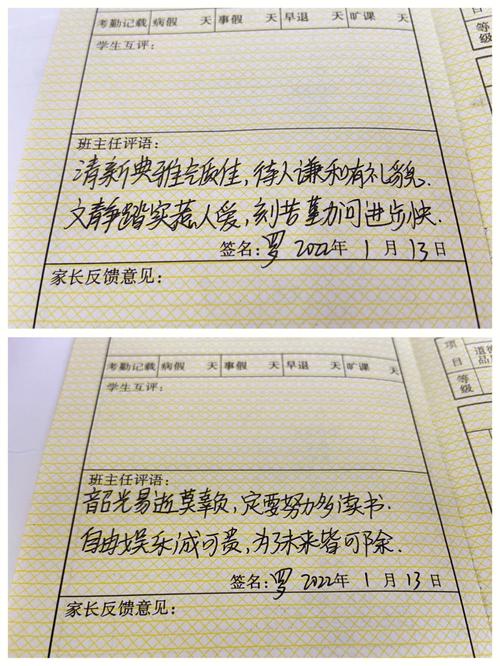 考勤记载 病假 天 事假 天 早退 天 旷课 天
等级
学生互评：
班主任评语：
清新典雅气质佳，待人谦和有礼貌.
文静踏实惹人爱，刻苦勤问进步快.
签名：罗 2022年 1月 13日
家长反馈意见：
项目
道德品
等级
考勤记载 病假 天 事假 天 早退 天 旷课 天
学生互评：
班主任评语：
韶光易逝莫辜负，定要努力多读书.
自由娱乐诚可贵，为了未来皆可除.
签名：罗 2022年 1月 13日
家长反馈意见：